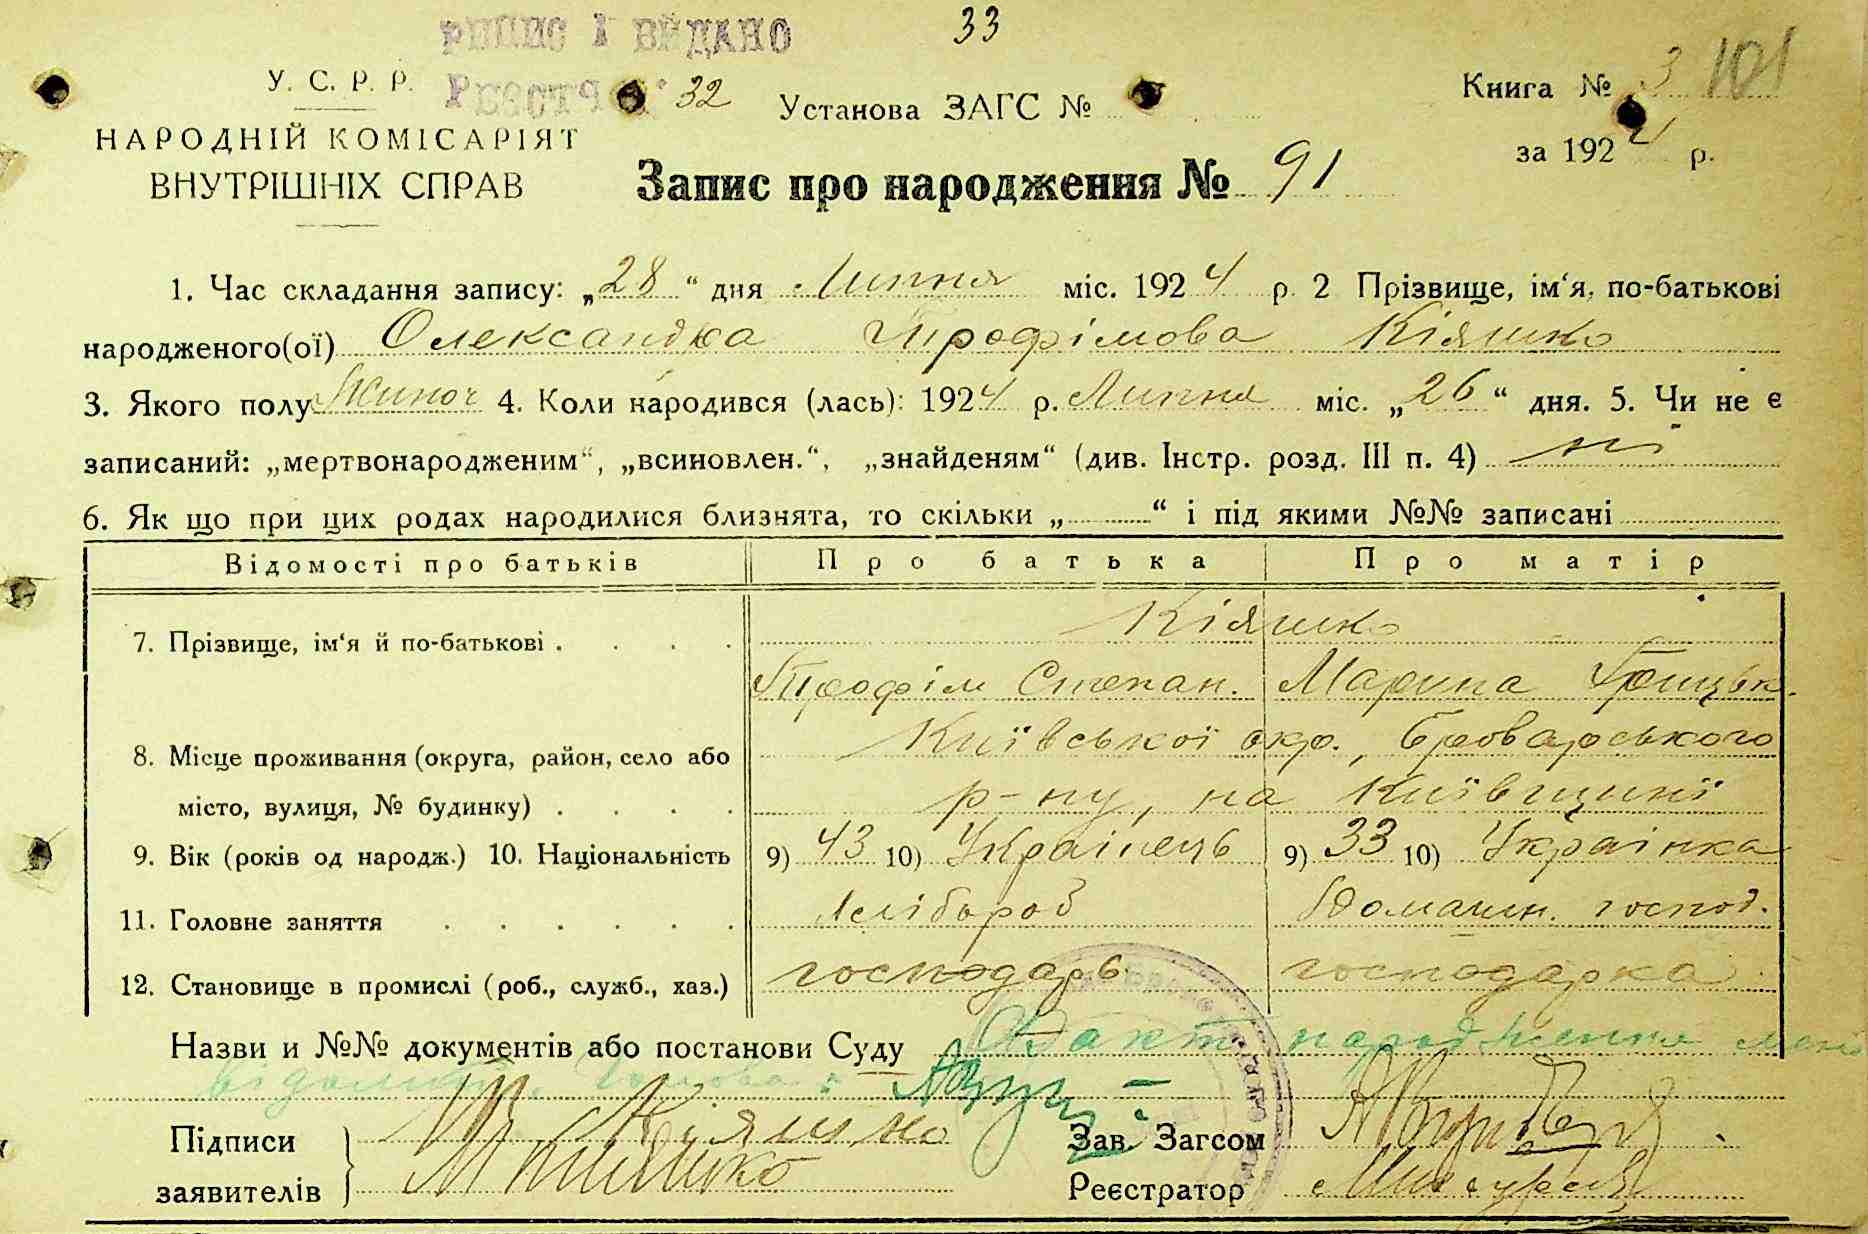 33
ВИПИС І ВИДАНО
У. С. Р. Р.
РЕЄСТР № 32
Установа ЗАГС №
Книга № 3 101
НАРОДНІЙ КОМІСАРІЯТ
ВНУТРІШНІХ СПРАВ
за 1924 р.
Запис про народження № 91
1. Час складання запису: „28“ дня Липня міс. 1924 р. 2 Прізвище, ім‘я, по-батькові
народженого(ої) Олександра Трофімова Кіяшко
3. Якого полу Жіноч 4. Коли народився (лась): 1924 р. Липня міс. „26“ дня. 5. Чи не є
записаний: „мертвонародженим“, „всиновлен.“, „знайденям“ (див. Інстр. розд. III п. 4) ні
6. Як що при цих родах народилися близнята, то скільки „ “ і під якими №№ записані
Відомості про батьків Про батька Про матір
Кіяшко
7. Прізвище, ім‘я й по-батькові
Трофім Степан. Марина Грицьк.
8. Місце проживання (округа, район, село або Київської окр., Броварського
місто, вулиця, № будинку) р-ну, на Київщині
9. Вік (років од народж.) 10. Національність 9) 43 10) Українець 9) 33 10) Українка
11. Головне заняття Хлібороб Домашн. господ.
12. Становище в промислі (роб., служб., хаз.) господарь господарка
Назви и №№ документів або постанови Суду Факт народження мені
відомий. Голова:
Підписи Кіяшко Зав. Загсом
заявителів Кіяшко Реєстратор